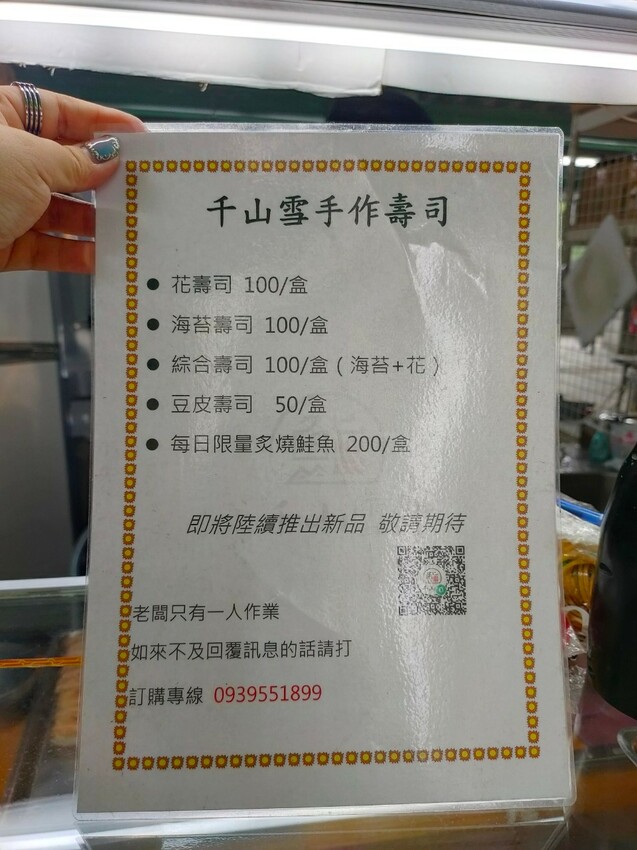 千山雪手作壽司
● 花壽司 100/盒
● 海苔壽司 100/盒
● 綜合壽司 100/盒 ( 海苔+花 )
● 豆皮壽司 50/盒
● 每日限量炙燒鮭魚 200/盒
即將陸續推出新品 敬請期待
老闆只有一人作業
如來不及回覆訊息的話請打
訂購專線 0939551899